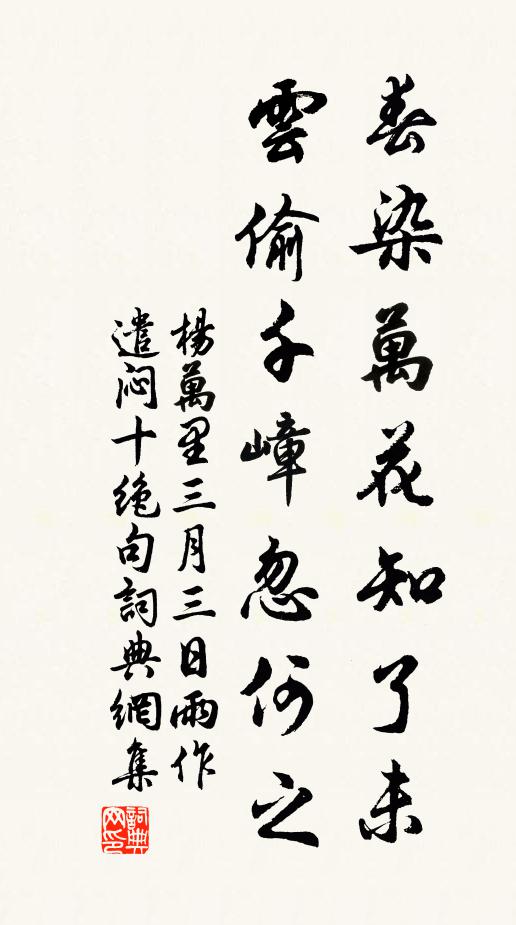 春染萬花知了未
雲偷千嶂忽何之
楊萬里三月三日雨作
遣悶十絶句詞典網集
詞典网印